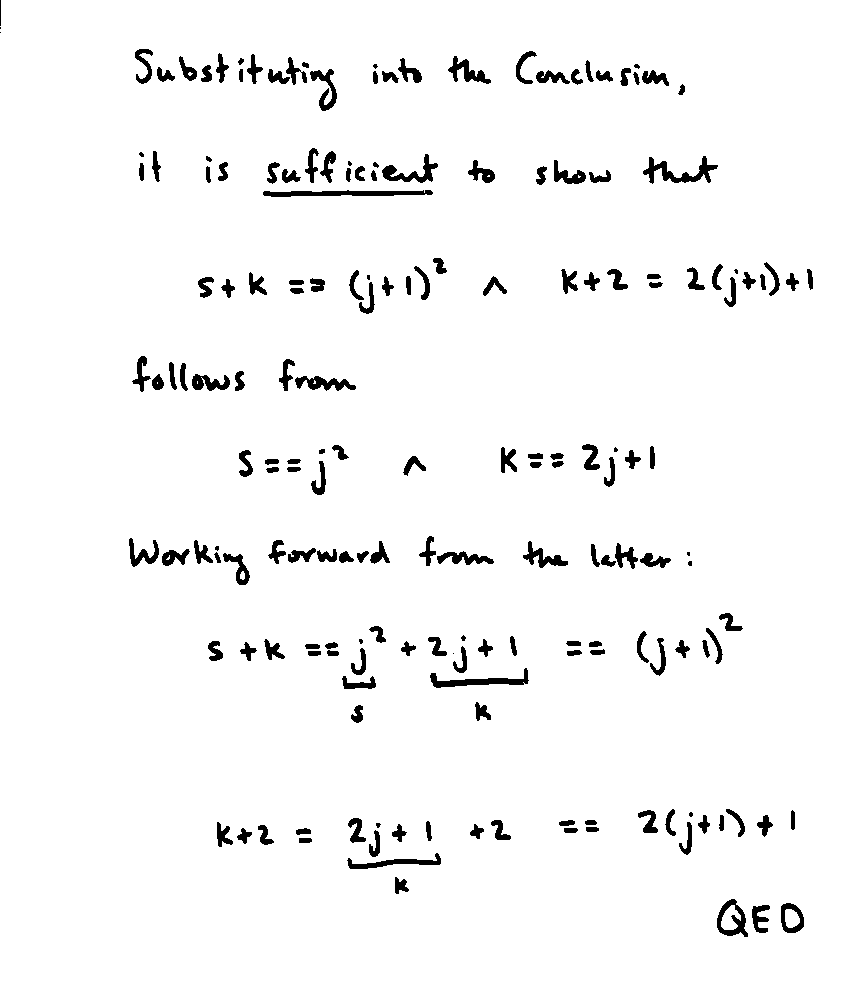 Substituting into the Conclusion,
it is sufficient to show that
s+k == (j+1)² ∧ k+2 = 2(j+1)+1
follows from
s == j² ∧ k == 2j+1
Working forward from the latter:
s+k == j² + 2j+1 == (j+1)²
s k
k+2 = 2j+1 +2 == 2(j+1)+1
k
QED